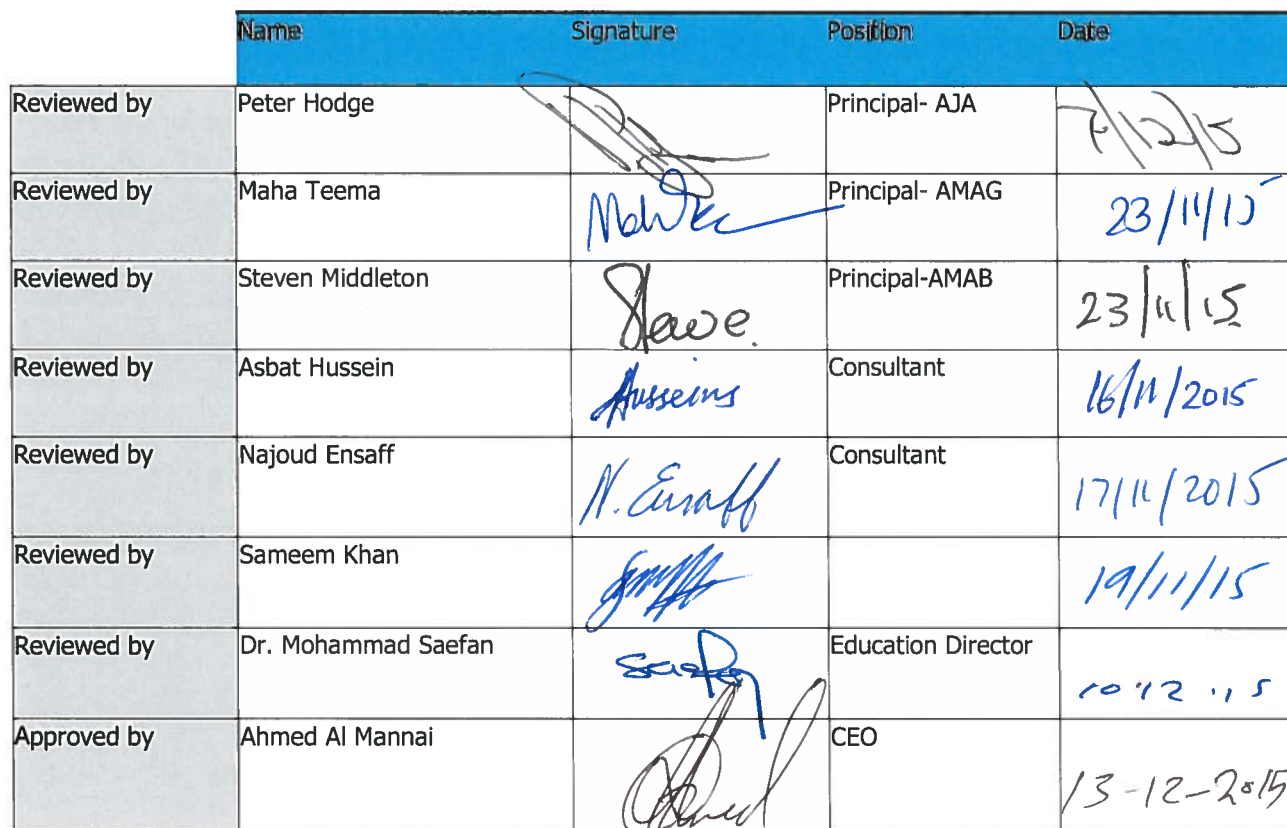 Name Signature Position Date
Reviewed by Peter Hodge Principal- AJA 7/12/15
Reviewed by Maha Teema Principal- AMAG 23/11/15
Reviewed by Steven Middleton Steve. Principal-AMAB 23/11/15
Reviewed by Asbat Hussein Husseins Consultant 16/11/2015
Reviewed by Najoud Ensaff N. Ensaff Consultant 17/11/2015
Reviewed by Sameem Khan 19/11/15
Reviewed by Dr. Mohammad Saefan Saefan Education Director 10.12.15
Approved by Ahmed Al Mannai CEO 13-12-2015